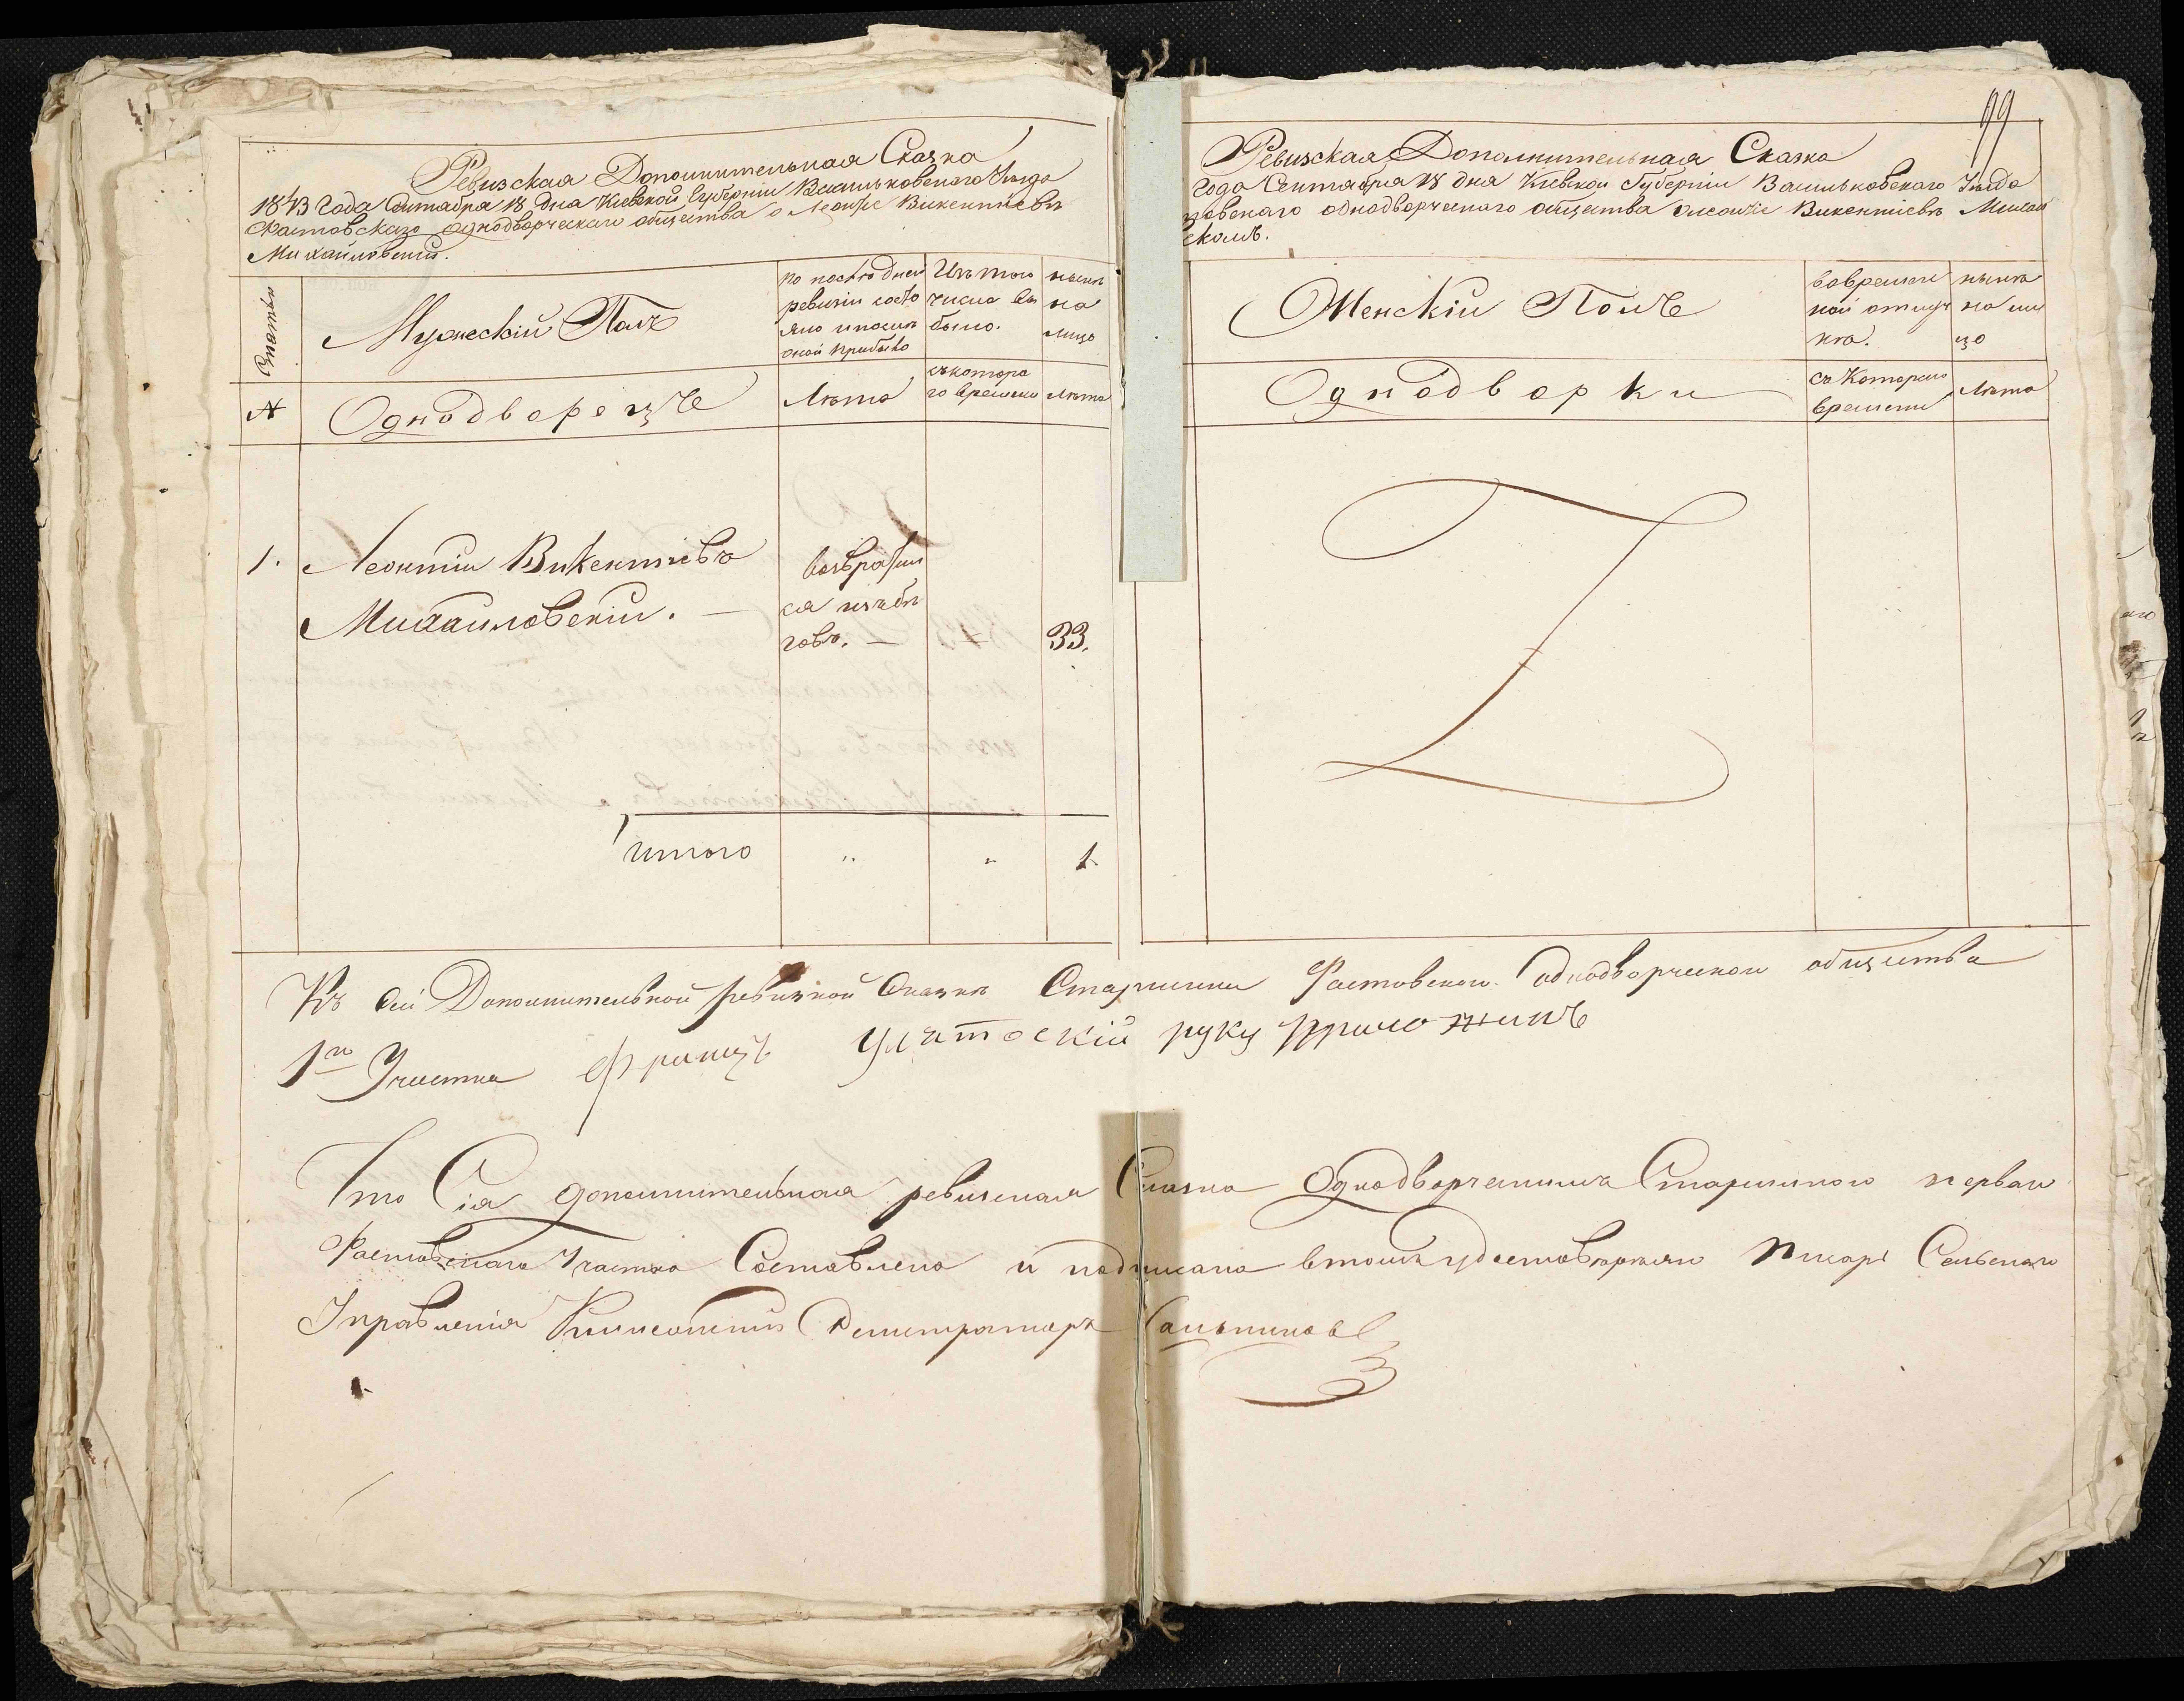 Ревизская Дополнительная Сказка
1843 года Сентября 18 дня Киевской Губерніи Васильковскаго Уѣзда
Фастовскаго однодворческаго общества о Леонтіе Викентіевѣ
Михайловскій.
Мужескій Полъ
по последней
ревизіи состо
яло и после
оной прибыло
Изъ того
числа вы
было.
нынѣ
на
лицо
№
Однодворецъ
Лѣта
съ котора
го времени
лѣта
1. Леонтій Викентіевъ
Михайловскій. —
возврати
ся изъ бѣ
говъ. —
33.
Итого " " 1.
99
Ревизская Дополнительная Сказка
года Сентября 18 дня Киевской Губерніи Васильковскаго Уѣзда
товскаго однодворческаго общества Викентіевѣ Михай
скомъ.
Женскій Полъ
вовремен
ной отлуч
ке.
нынѣ
на ли
цо
Однодворки
съ Котораго
времени
Лѣта
Къ сей Дополнительной ревизкой Сказкѣ Старшина Фастовского однодворческого общества
1го Участка Францъ руку приложилъ
Что Сія дополнительная ревизская Сказка Однодворческимъ Старшиною перваго
Фастовскаго Участка Составлена и подписана втомъ удостовѣряю Писарь Сельскаго
Управленія